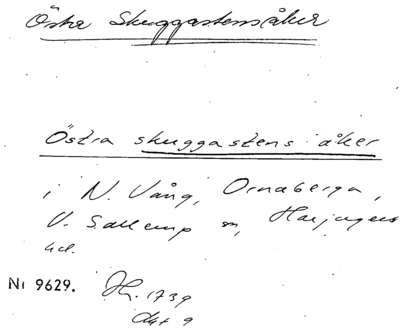 Östra Skuggastensåker
Östra skuggastens åker
i N. Vång, Ornaberga,
V. Sallerup sn, Harjagers
hd.
Nr 9629. Jfr. 1739
Akt 9